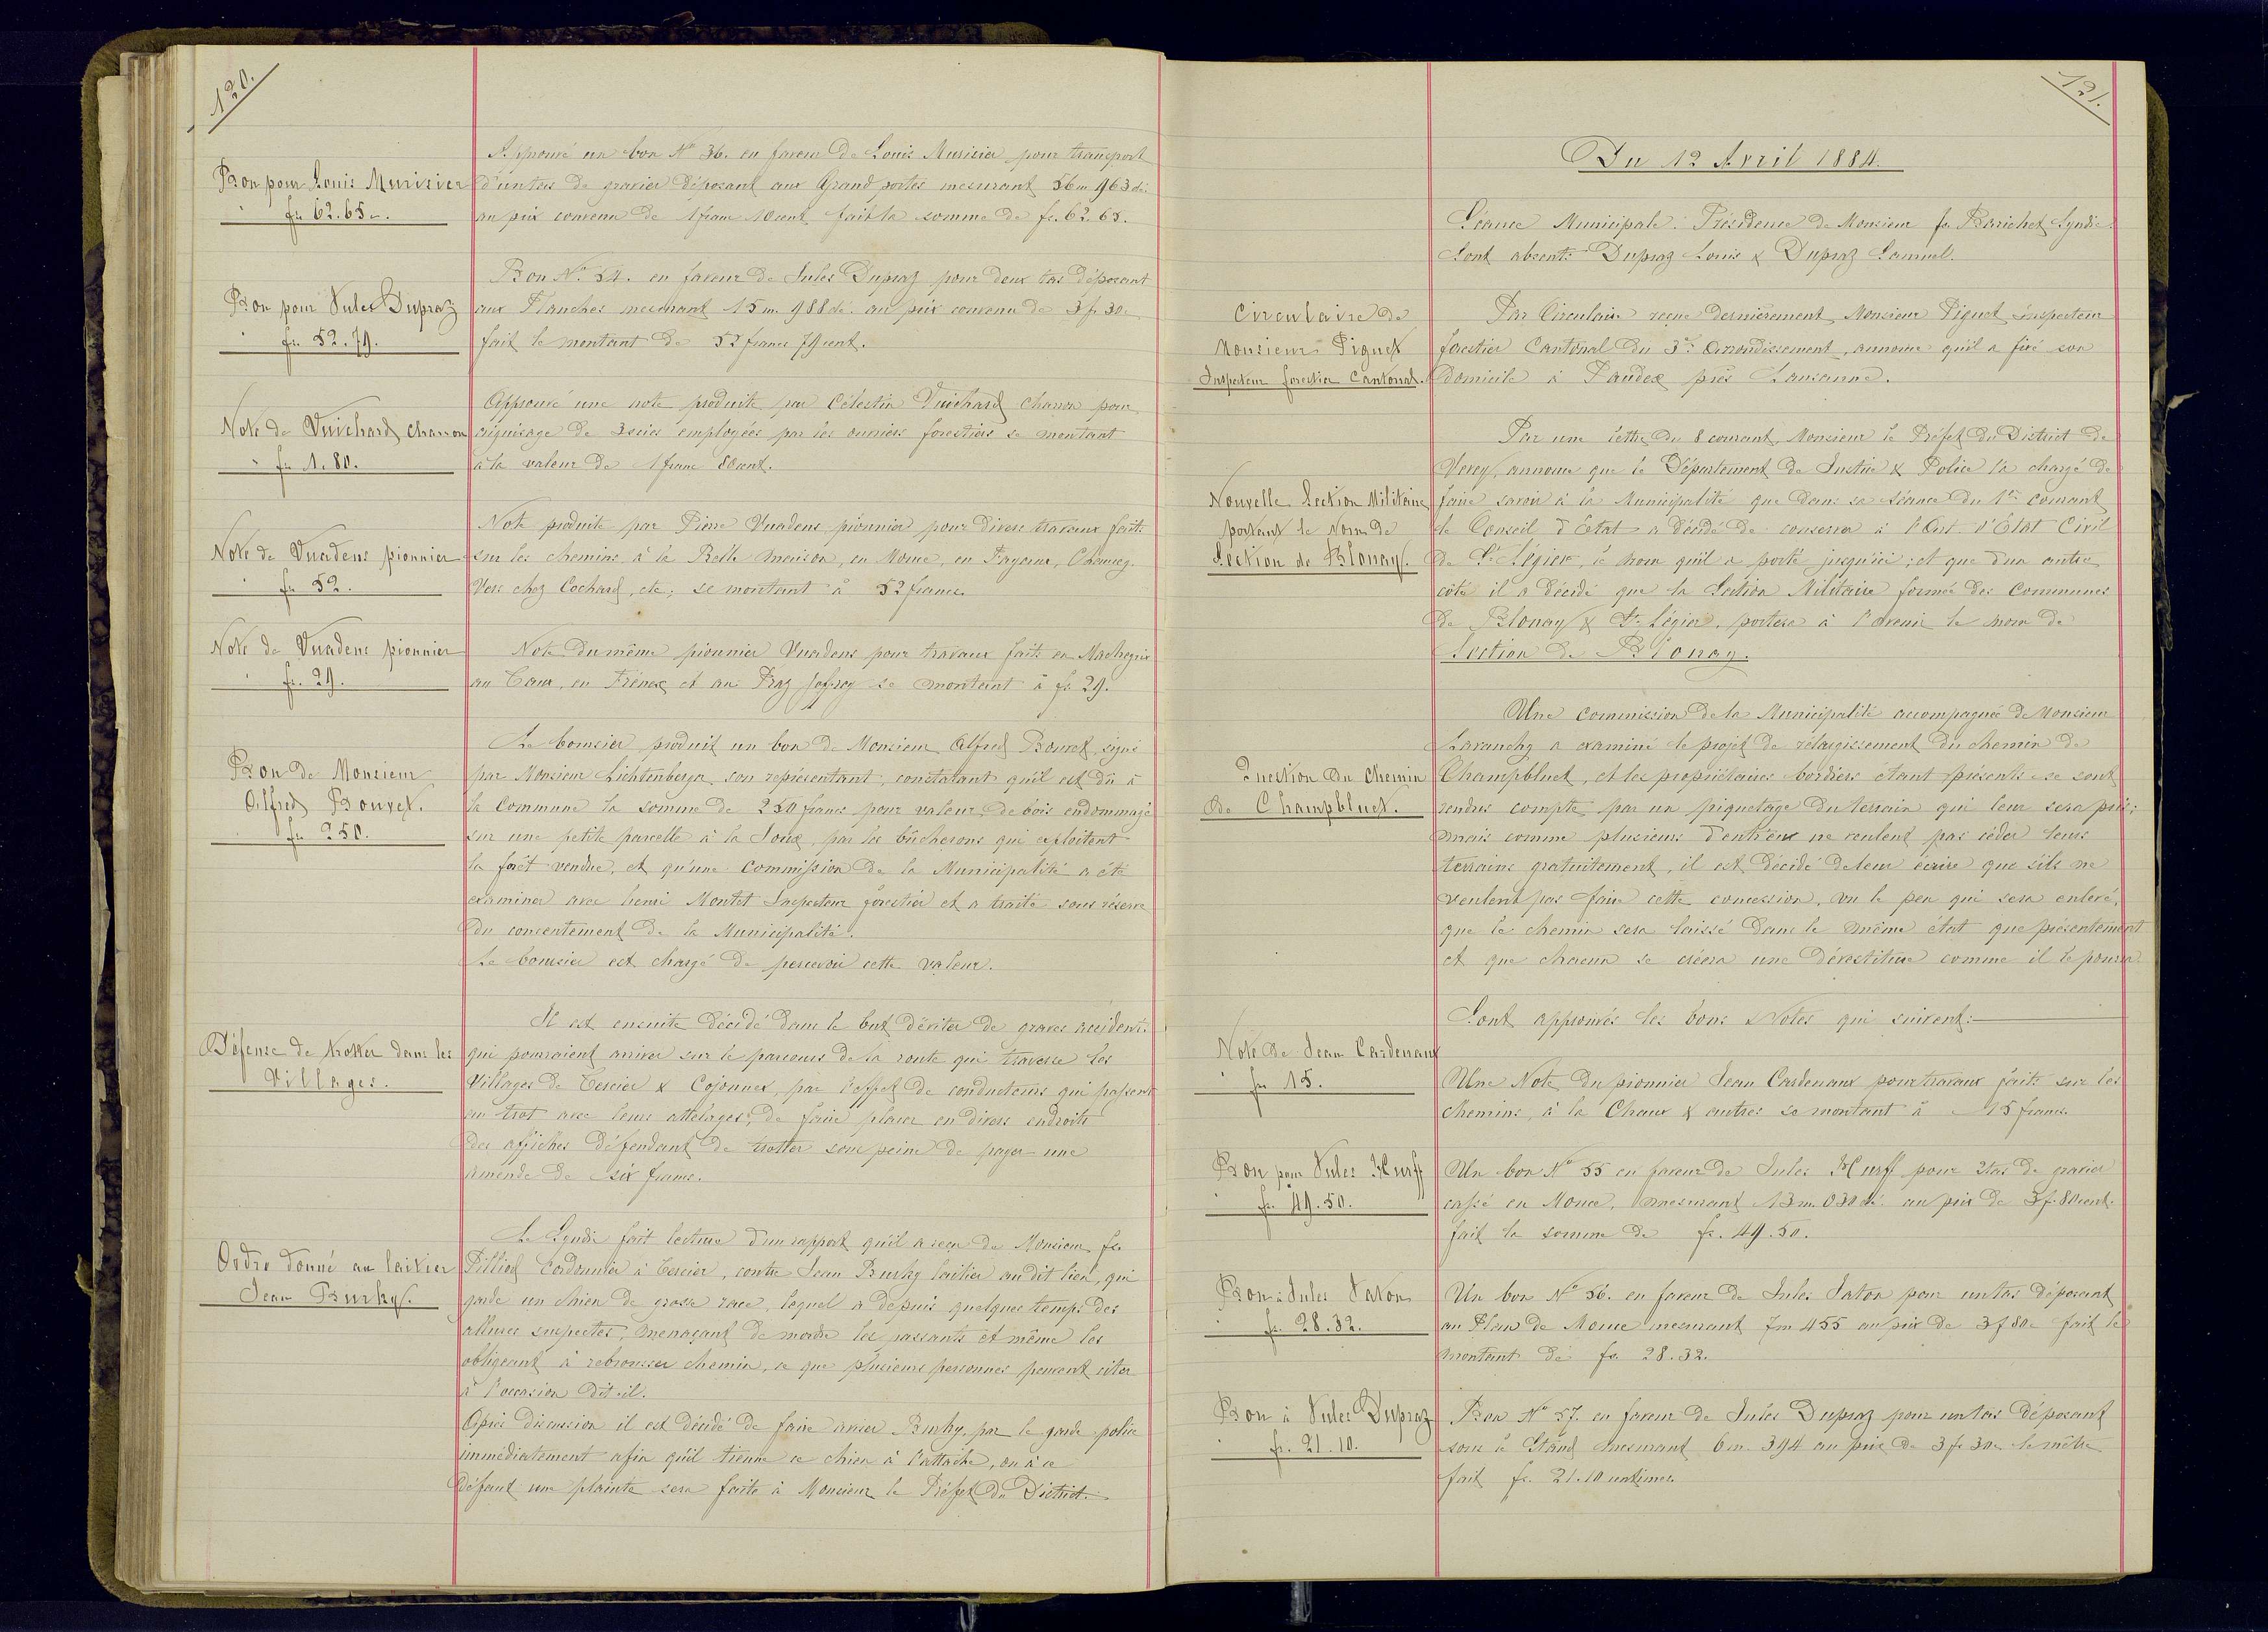 120.
Bon pour Louis Murisier
fr. 62.65 c.
Approuvé un bon No 36. en faveur de Louis Murisier pour transport
d'un tas de gravier déposant aux Grand portes mesurant 56m 963 di.
au prix convenu de 1 franc 10 cent. fait la somme de fr. 62.65.
Bon pour Jules Dupraz
fr. 52.79.
Bon No 54. en faveur de Jules Dupraz pour deux tas déposant
aux Planches mesurant 15 m. 988 di. au prix convenu de 3 f. 30 c.
fait le montant de 52 francs 79 cent.
Note de Vuichard charron
fr. 1.80.
Approuvé une note produite par Célestin Vuichard charron pour
aiguisage de 3 scies employées par les ouvriers forestiers se montant
à la valeur de 1 franc 80 cent.
Note de Vuadens pionnier
fr. 52.
Note produite par Pierre Vuadens pionnier pour divers travaux faits
sur les chemins à la Belle maison, en Mouce, en Fayaux, Chaucey.
Vers chez Cochard, etc; se montant à 52 francs.
Note de Vuadens pionnier
fr. 29.
Note du même pionnier Vuadens pour travaux faits en
au en Frénex et au Praz Joffrey se montant à fr. 29.
Bon de Monsieur
Alfred Bouvet.
fr. 250.
Le boursier produit un bon de Monsieur Alfred Bouvet, signé
par Monsieur Lichtenberger son représentant, constatant qu'il est dû à
la Commune la somme de 250 francs pour valeur de bois endommagé
sur une petite parcelle à la Joux, par les bûcherons qui exploitent
la forêt vendue, et qu'une Commission de la Municipalité a été
examiner avec henri Montet Inspecteur forestier et a traité sous réserve
du consentement de la Municipalité.
Le boursier est chargé de percevoir cette valeur.
Défense de trotter dans les
Villages.
Il est ensuite décidé dans le but d'éviter de graves accidents
qui pourraient arriver sur le parcours de la route qui traverse les
Villages de Tercier & Cojonnex, par l'effet de conducteurs qui passent
au trot avec leurs attelages; de faire placer en divers endroits
des affiches défendant de trotter sous peine de payer une
amende de six francs.
Ordre donné au laitier
Jean Burky.
Le Syndic fait lecture d'un rapport qu'il a reçu de Monsieur fs
Pilliod Cordonnier à Tercier, contre Jean Burky laitier au dit lieu, qui
garde un chien de grosse race, lequel a depuis quelques temps des
allures suspectes, menaçant de mordre les passants et même les
obligeant à rebrousser chemin, ce que plusieurs personnes peuvent citer
à l'occasion dit-il.
Après discussion il est décidé de faire aviser Burky, par le garde police
immédiatement afin qu'il tienne ce chien à l'attache, ou à ce
défaut une plainte sera faite à Monsieur le Préfet du District.
121.
Du 12 Avril 1884.
Séance Municipale. Présidence de Monsieur fs Bonjour Syndic.
Sont absents Dupraz Louis & Dupraz Samuel.
Circulaire de
Monsieur Piguet
Inspecteur forestier Cantonal.
Par Circulaire reçue dernièrement, Monsieur Piguet inspecteur
forestier Cantonal du 3e Arrondissement, annonce qu'il a fixé son
domicile à Paudex près Lausanne.
Nouvelle Section Militaire
portant le Nom de
Section de Blonay.
Par une lettre du 8 courant, Monsieur le Préfet du District de
Vevey, annonce que le Département de Justice & Police l'a chargé de
faire savoir à la Municipalité que dans sa séance du 1er courant
le Conseil d'Etat a décidé de conserver à l'Arrt d'Etat Civil
de St Légier, le nom qu'il a porté jusqu'ici; et que d'un autre
côté il a décidé que la Section Militaire formée des Communes
de Blonay & St Légier, portera à l'avenir le nom de
Section de Blonay.
Question du chemin
de Champbluet.
Une commission de la Municipalité accompagnée de Monsieur
Lavanchy a examiné le projet de rélargissement du chemin de
Champbluet, et les propriétaires bordiers étant présents se sont
rendus compte par un piquetage du terrain qui leur sera pris;
mais comme plusieurs d'entr'eux ne veulent pas céder leurs
terrains gratuitement, il est décidé de leur écrire que s'ils ne
veulent pas faire cette concession, vu le peu qui sera enlevé,
que le chemin sera laissé dans le même état que présentement
et que chacun se créera une dévestiture comme il le pourra.
Sont approuvés les bons & Notes qui suivent:
Note de Jean Cardenaux
fr. 15.
Une Note du pionnier Jean Cardenaux pour travaux faits sur les
chemins, à la Chaux & autres se montant à 15 francs.
Bon pour Jules
fr. 49.50.
Un bon No 55 en faveur de Jules pour 2 tas de gravier
cassé en Mouce, mesurant 13 m. 030 di. au prix de 3 f. 80 cent.
fait la somme de fr. 49.50.
Bon à Jules Taton
fr. 28.32.
Un bon No 56. en faveur de Jules Taton pour un tas déposant
au Plan de Mouce mesurant 7m 455 au prix de 3 f 80 c fait le
montant de fr. 28.32.
Bon à Jules Dupraz
fr. 21.10.
Bon No 57. en faveur de Jules Dupraz pour un tas déposant
sous le Stand mesurant 6 m. 394 au prix de 3 f. 30 c le mètre
fait fr. 21.10 centimes.